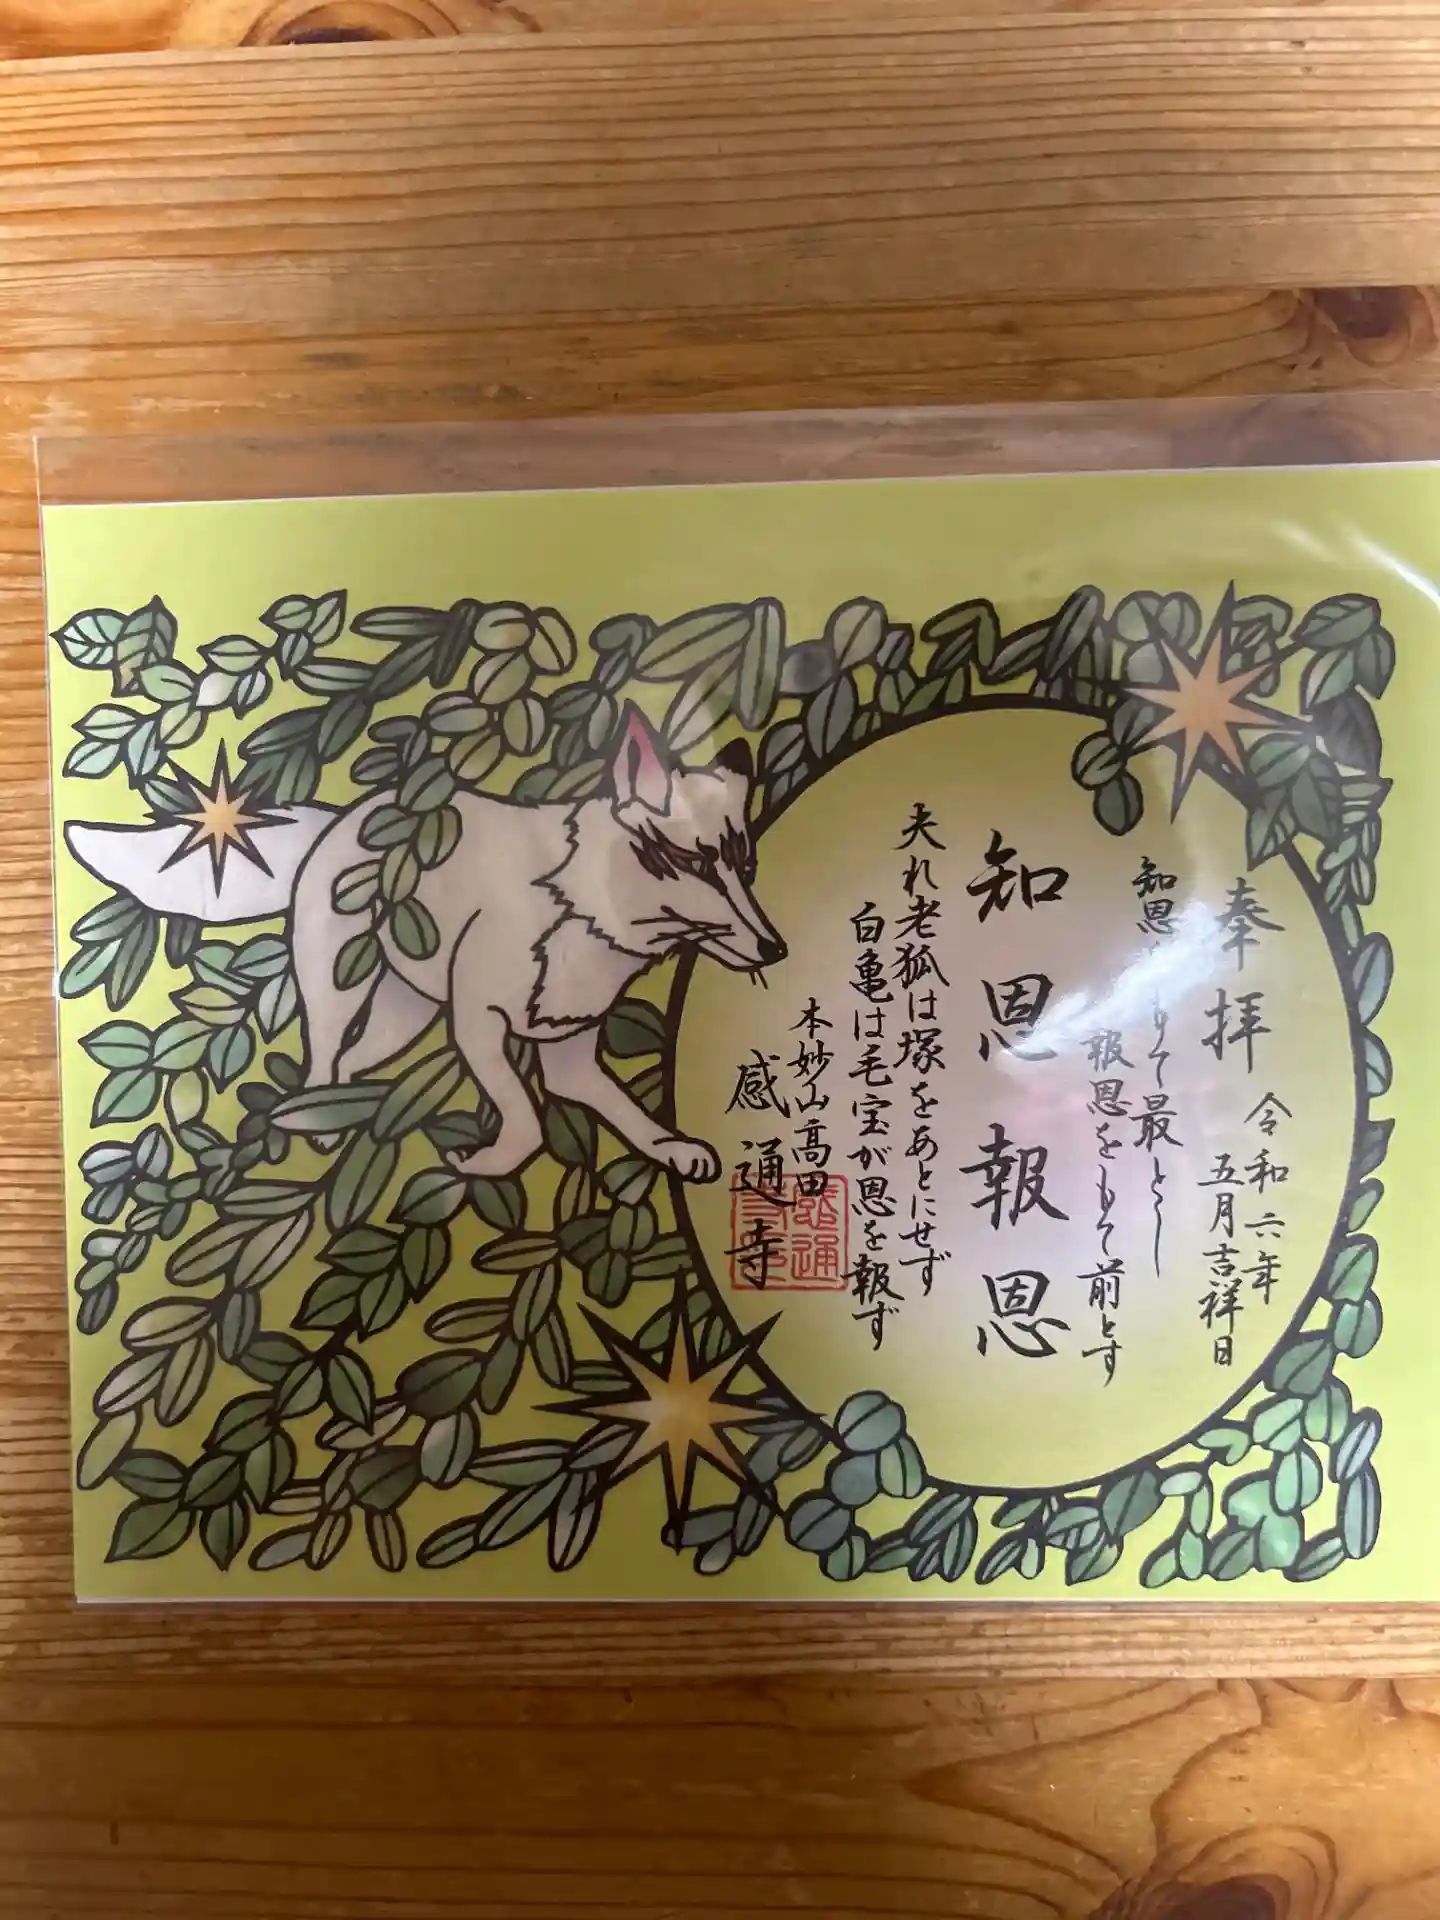 奉拝
令和六年
五月吉祥日
知恩をもて最とし
報恩をもて前とす
知恩報恩
夫れ老狐は塚をあとにせず
白亀は毛宝が恩を報ず
本妙山高田
感通寺